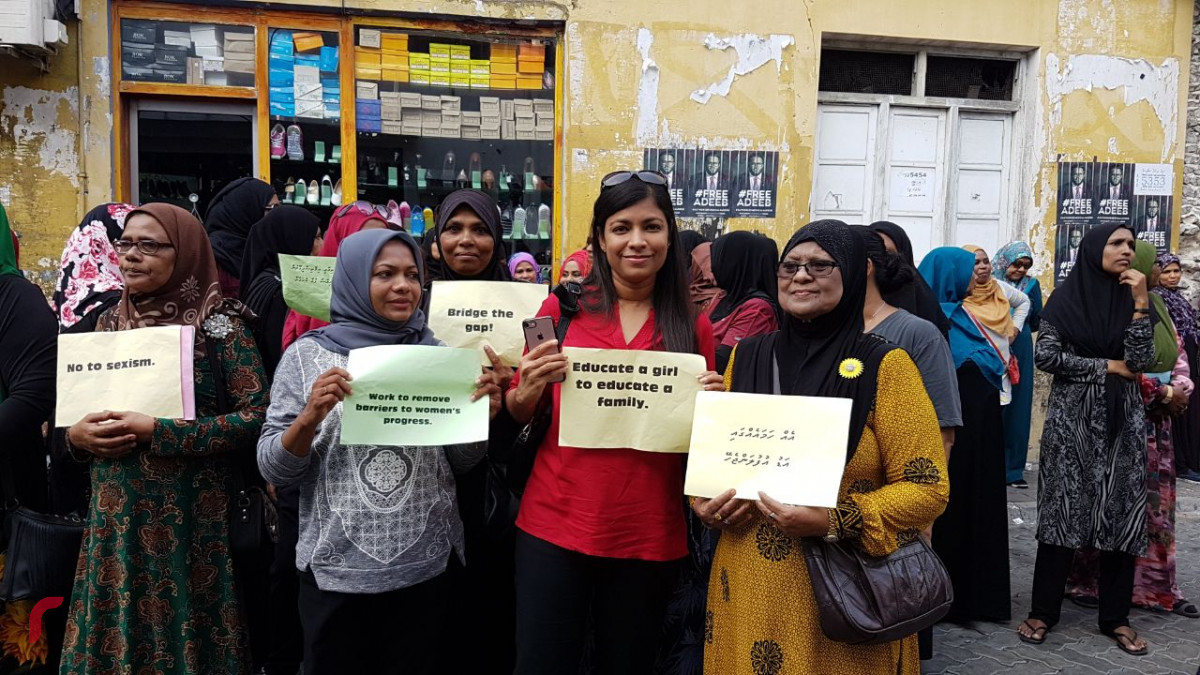 #FREE
ADEEB
#FREE
#FREE
ADEEB
5454
#FREE
ADEEB
#FREE
ADEEB
5453
Bridge the
gap!
No to sexism.
Work to remove
barriers to women's
progress.
Educate a girl
to educate a
family.
އެއް ހަމައެއްގައި
އަޑު އުފުލަންޖެހޭ